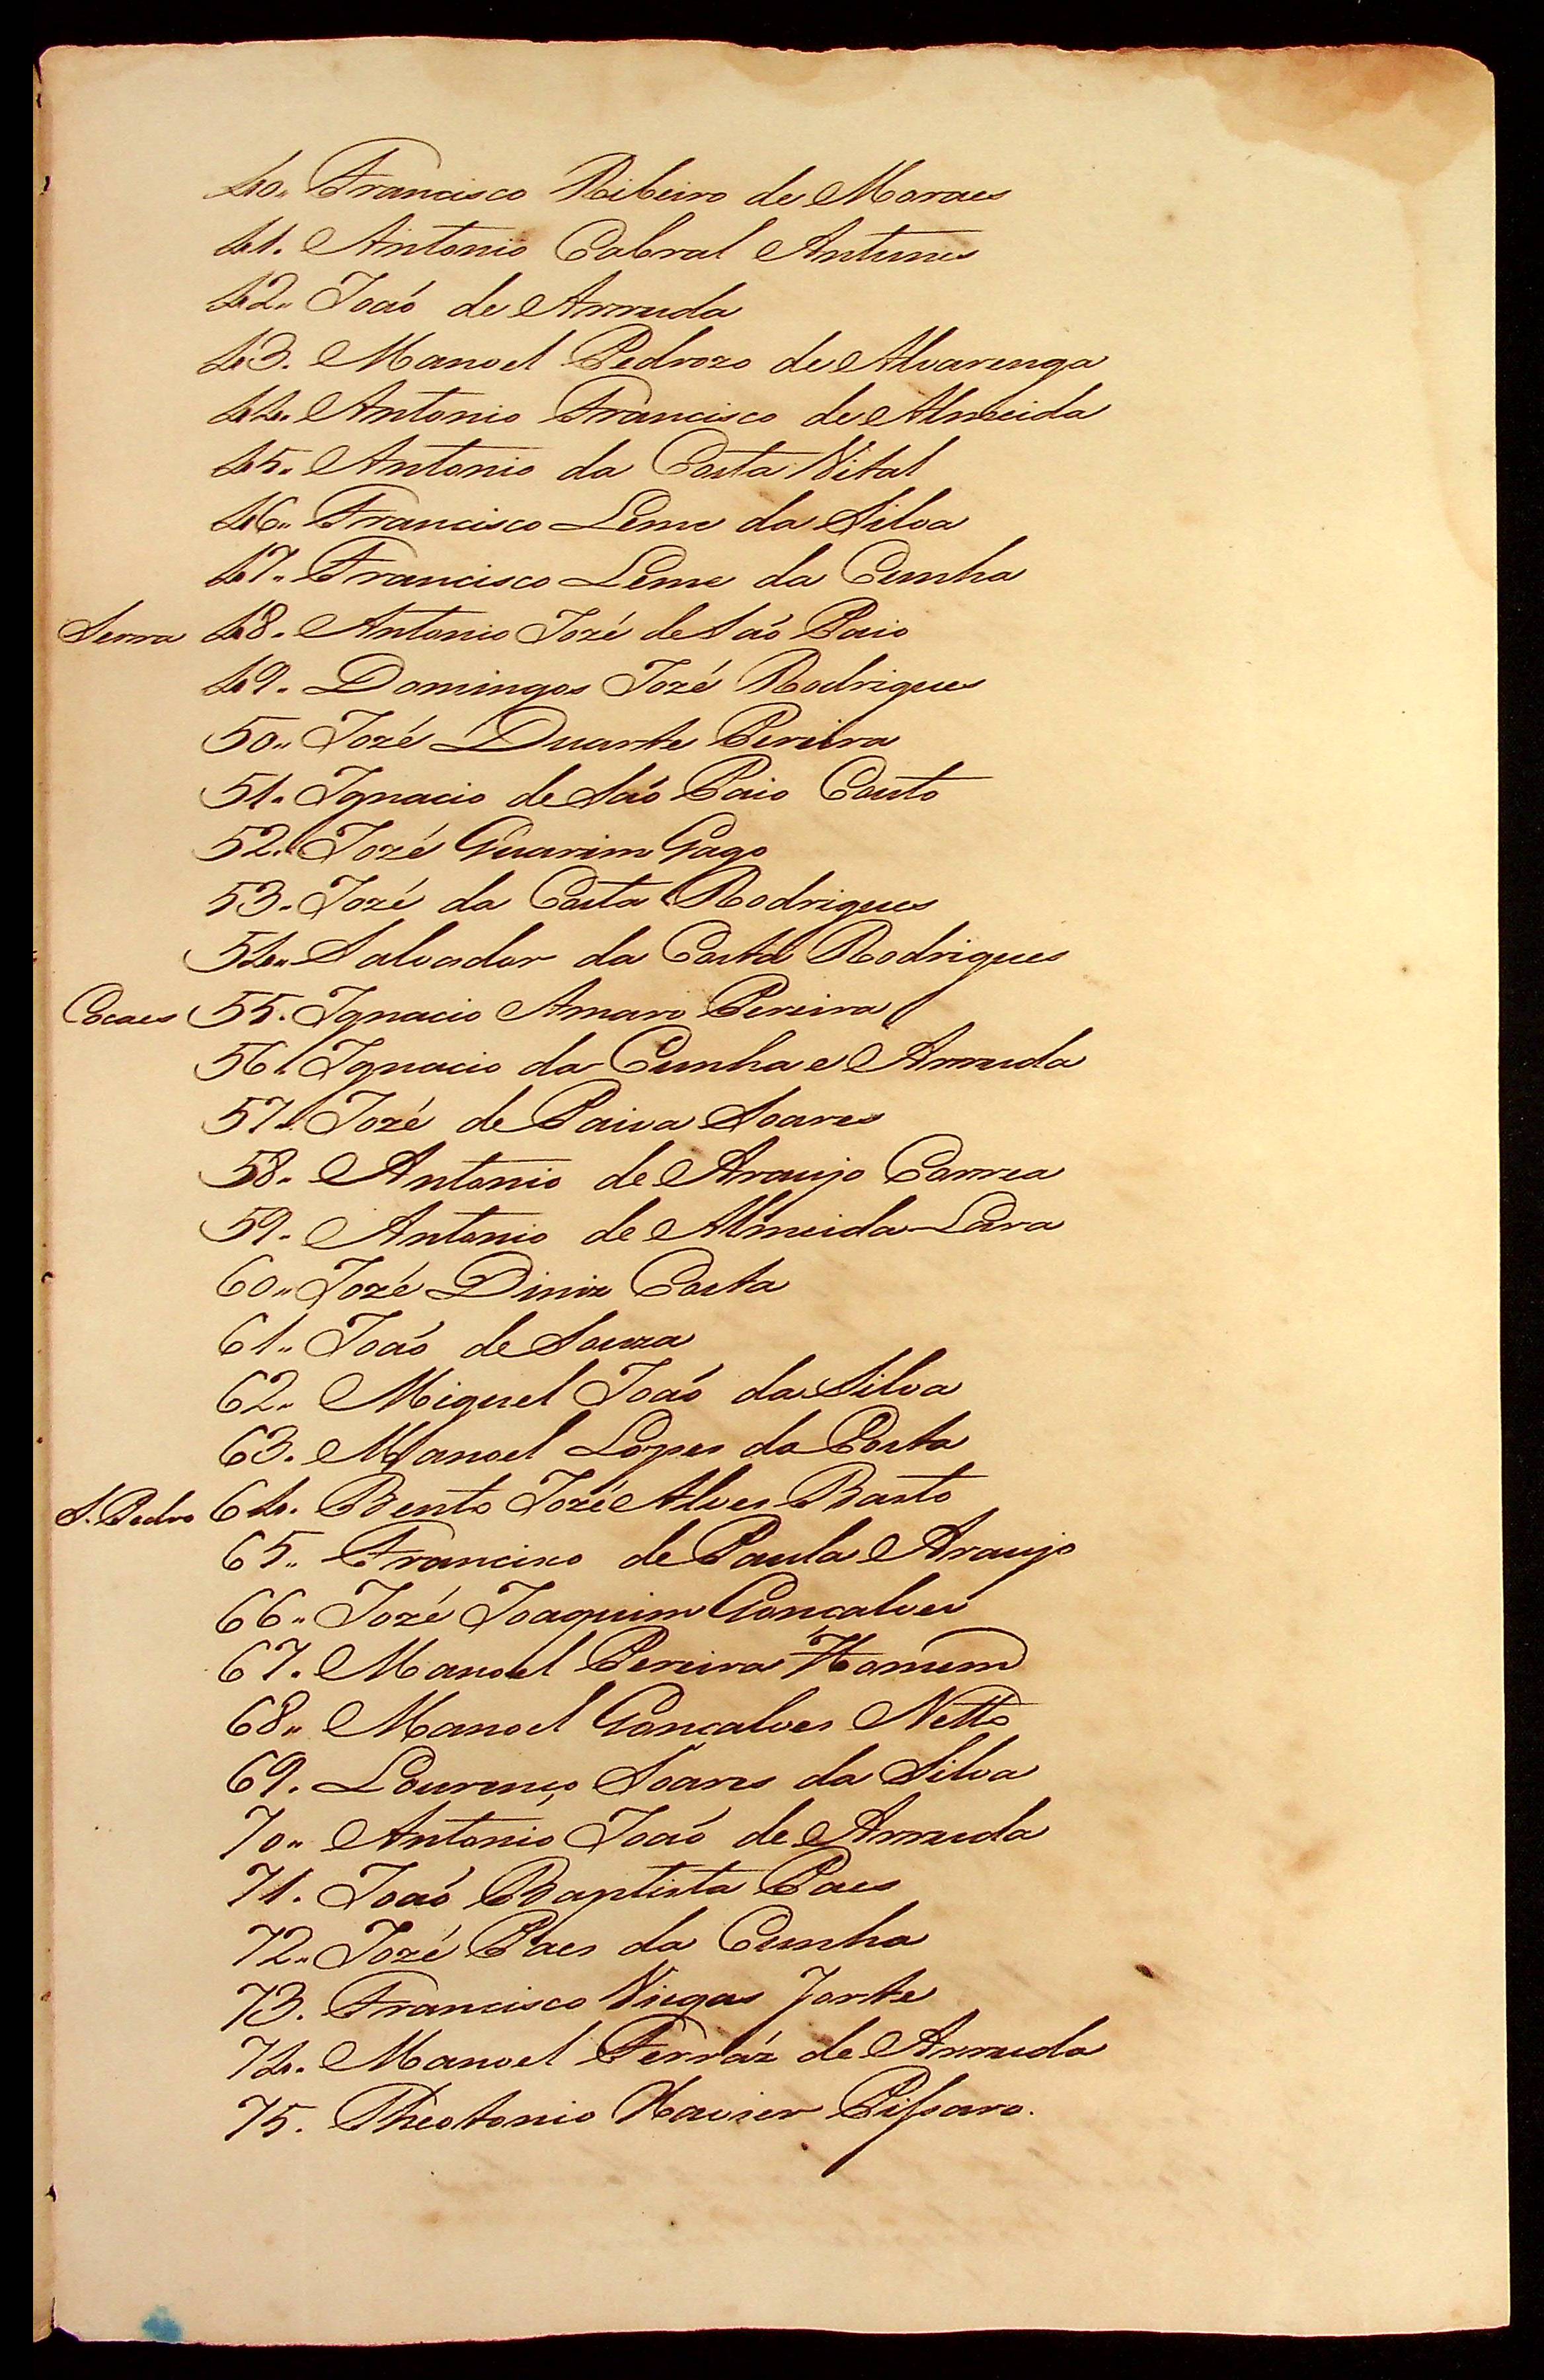 40. Francisco Ribeiro de Moraes
41. Antonio Cabral Antunes
42. João de Arruda
43. Manoel Pedrozo de Alvarenga
44. Antonio Francisco de Almeida
45. Antonio da Costa Vital
46. Francisco Leme da Silva
47. Francisco Leme da Cunha
Serra 48. Antonio Jozé de São Paio
49. Domingos Jozé Rodrigues
50. Jozé Duarte Pereira
51. Ignacio de São Paio Couto
52. Jozé Guarim Gago
53. Jozé da Costa Rodrigues
54. Salvador da Costa Rodrigues
Cocaes 55. Ignacio Amaro Pereira
56. Ignacio da Cunha e Arruda
57. Jozé de Paiva Soares
58. Antonio de Araujo Correa
59. Antonio de Almeida Lara
60. Jozé Diniz Costa
61. João de Souza
62. Miguel João da Silva
63. Manoel Lopes da Costa
S. Pedro 64. Bento Jozé Alves Basto
65. Francisco de Paula Araujo
66. Jozé Joaquim Gonçalves
67. Manoel Pereira Homem
68. Manoel Gonçalves Netto
69. Lourenço Soares da Silva
70. Antonio João de Arruda
71. João Baptista Paes
72. Jozé Paes da Cunha
73. Francisco Viegas Jorte
74. Manoel Ferráz de Arruda
75. Theotonio Xavier Pissaro.